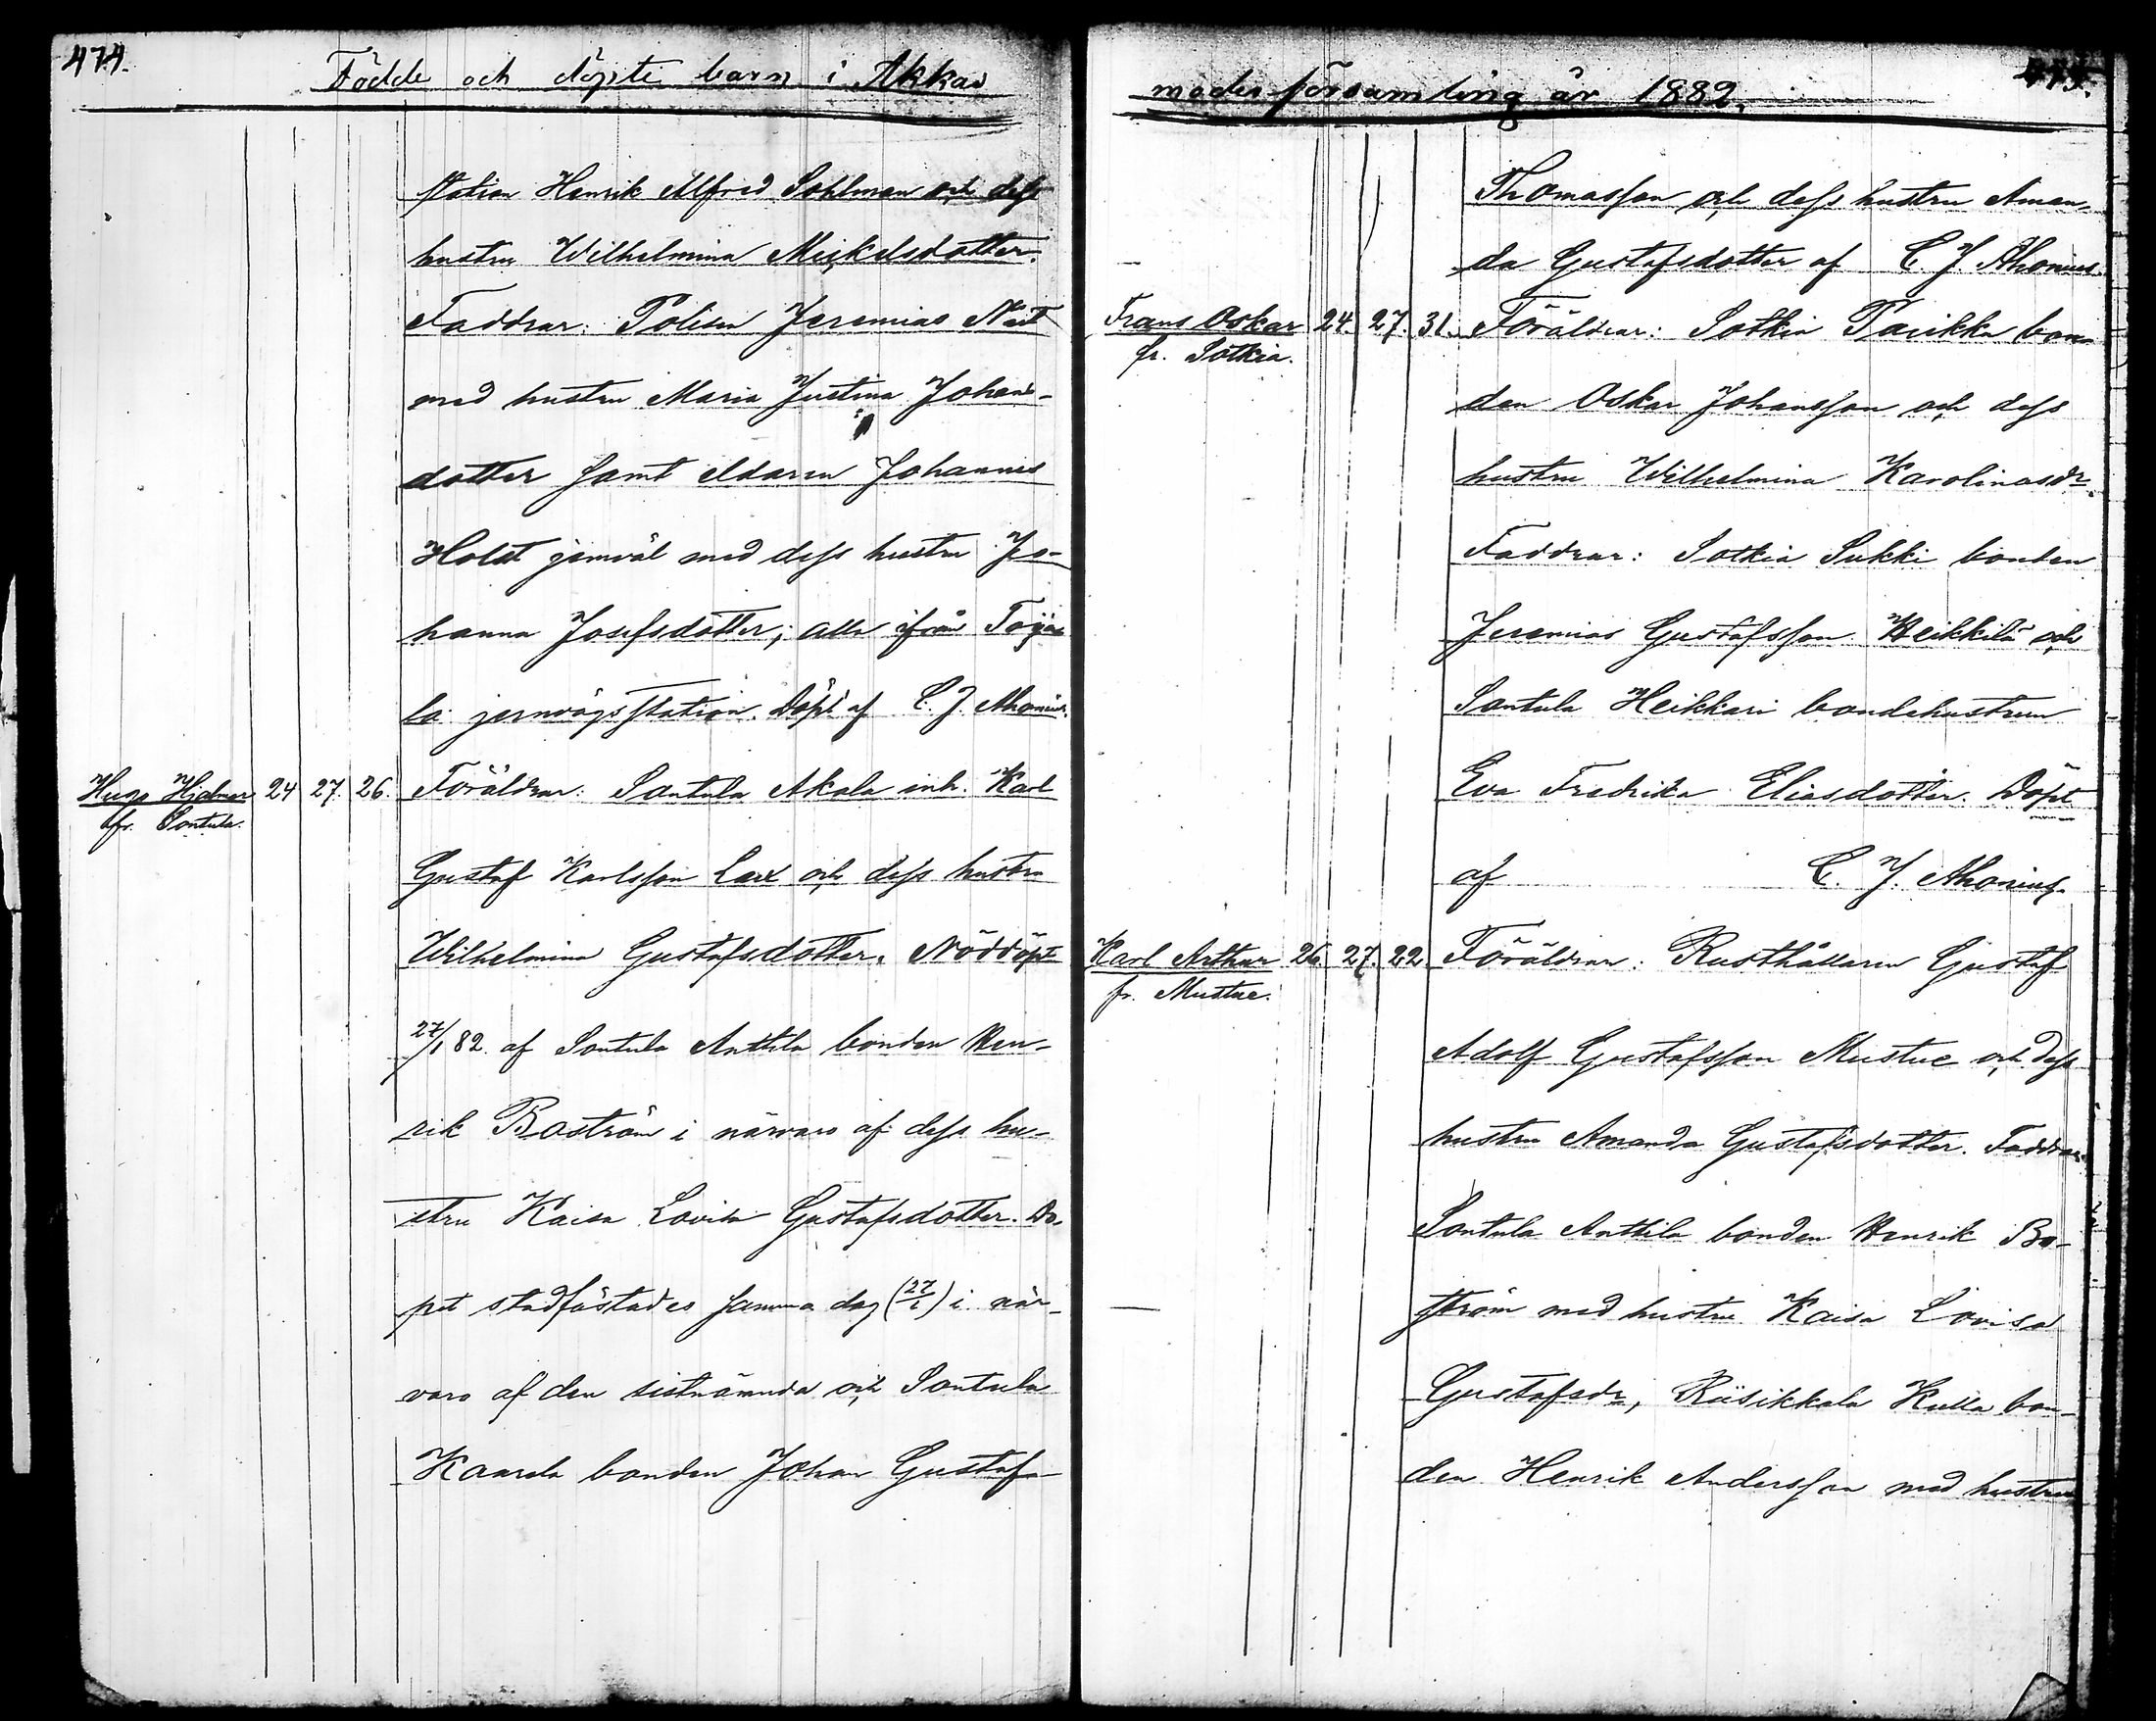 474.
Födde och döpte barn i Akkas
station Henrik Alfred Sohlman och dess
hustru Wilhelmina Mickelsdotter.
Faddrar: Polisen Jeremias
med hustru Maria Justina Johans-
dotter samt eldaren Johannes
Holst jemväl med dess hustru Jo-
hanna Josefsdotter; alla ifrån Toija-
la jernvägsstation. Döpt af C. J. Ahonius.
Hugo Hjalmar 24 27. 26. Föräldrar: Sontula Akola inh. Karl
fr. Sontula.
Gustaf Karlsson Lax och dess hustru
Wilhelmina Gustafsdotter. Nöddöpt
27/1 82. af Sontula Anttila bonden Hen-
rik Boström i närvaro af dess hu-
stru Kaisa Lovisa Gustafsdotter. Do-
pet stadfästades samma dag (27/1) i när-
varo af den sistnämnda och Sontula
Kaarela bonden Johan Gustafs-
475.
moderförsamling år 1882.
Thomasson och dess hustru Aman-
da Gustafsdotter af C. J. Ahonius.
Frans Oskar 24. 27. 31. Föräldrar: Sotkia Parikka bon-
fr. Sotkia.
den Oskar Johansson och dess
hustru Wilhelmina Karolinasdr.
Faddrar: Sotkia Sukki bonden
Jeremias Gustafsson Heikkilä och
Sontula Heikkari bondehustrun
Eva Fredrika Eliasdotter. Döpt
af C. J. Ahonius.
Karl Arthur 26. 27. 22. Föräldrar: Rusthållaren Gustaf
fr. Mustue.
Adolf Gustafsson Mustue och dess
hustru Amanda Gustafsdotter. Faddrar:
Sontula Anttila bonden Henrik Bo-
ström med hustru Kaisa Lovisa
Gustafsdr, Riisikkala Kulla bon-
den Henrik Andersson med hustru